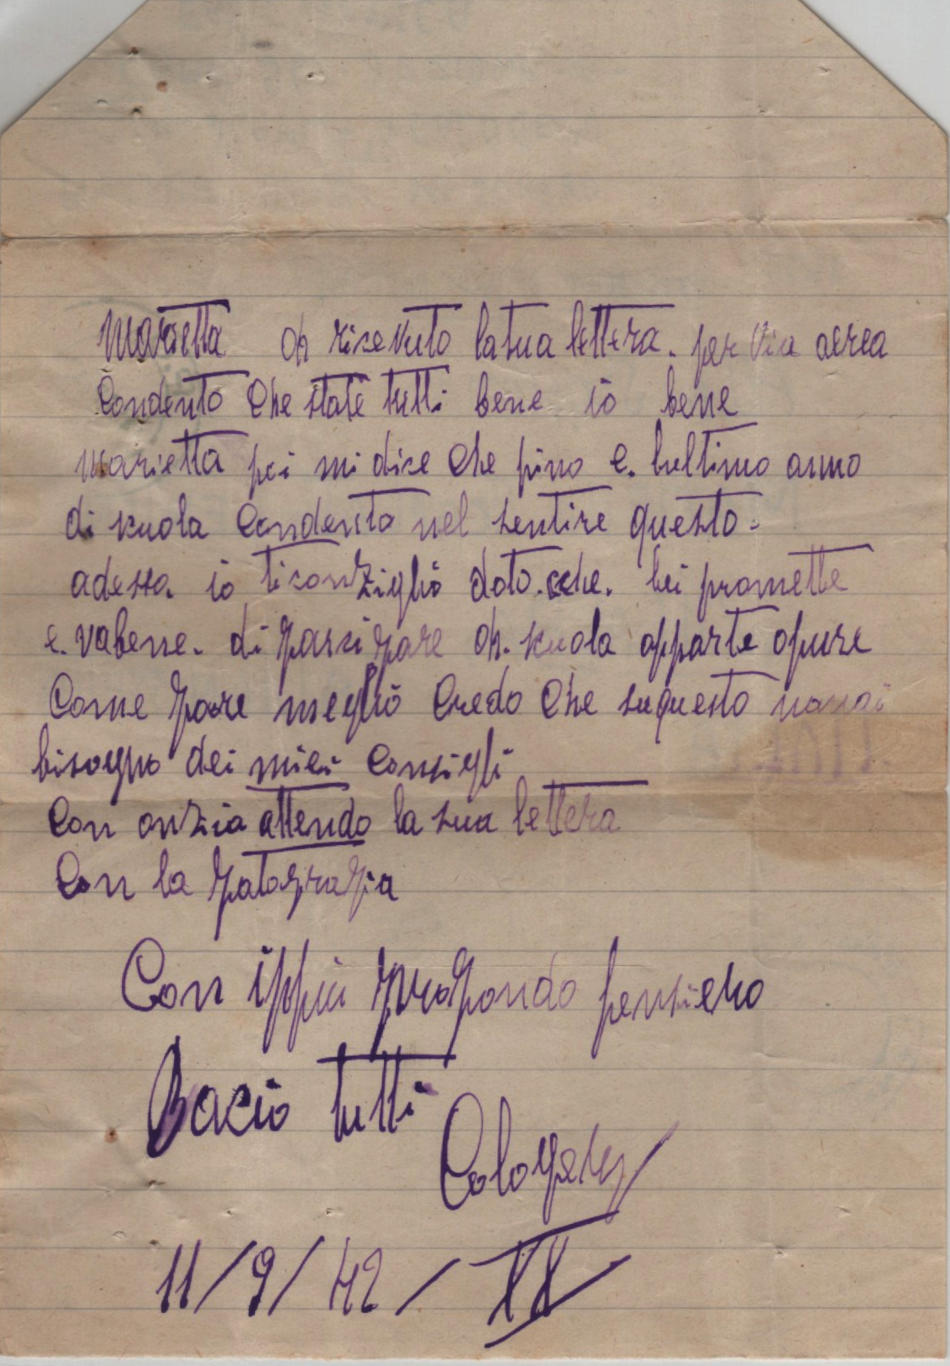 Marietta oh ricevuto la tua lettera. per via aerea
Condento che state tutti bene io bene
Marietta poi mi dice che pino e. lultimo anno
di scuola Condento nel sentire questo.
adesso. io ti conziglio dato.che. lei promette
e. vabene. di farci fare oh. scuola apparte opure
Come pare meglio Credo che suquesto nonai
bisogno dei miei Consigli
Con anzia attendo la sua lettera
Con la fatografia
Con ippiu profondo pensiero
Bacio tutti
11/9/42/XX